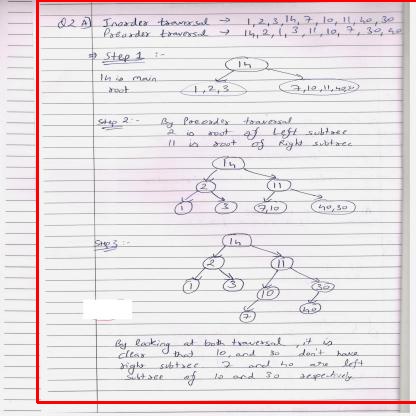 Q2 A) Inorder traversal → 1, 2, 3, 14, 7, 10, 11, 40, 30
Preorder traversal → 14, 2, 1, 3, 11, 10, 7, 30, 40
⇒ Step 1 :-
14
14 is main
root
1, 2, 3
7, 10, 11, 40, 30
Step 2 :- By Preorder traversal
2 is root of Left subtree
11 is root of Right subtree
14
2 11
1 3 7, 10 40, 30
Step 3 :-
14
2 11
1 3 10 30
7 40
By looking at both traversal, it is
clear that 10, and 30 don't have
right subtree 7 and 40 are left
subtree of 10 and 30 respectively